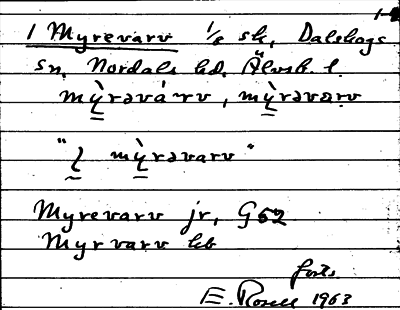 1-2
1 Myrevarv 1/6 sk, Dalskogs
sn. Nordals hd. Älvsb. l.
mỳrəvárv, mỳrəvarv
" mỳrəvarv "
Myrevarv jr, G52
Myrvarv kb
forts.
E. Rosell 1963